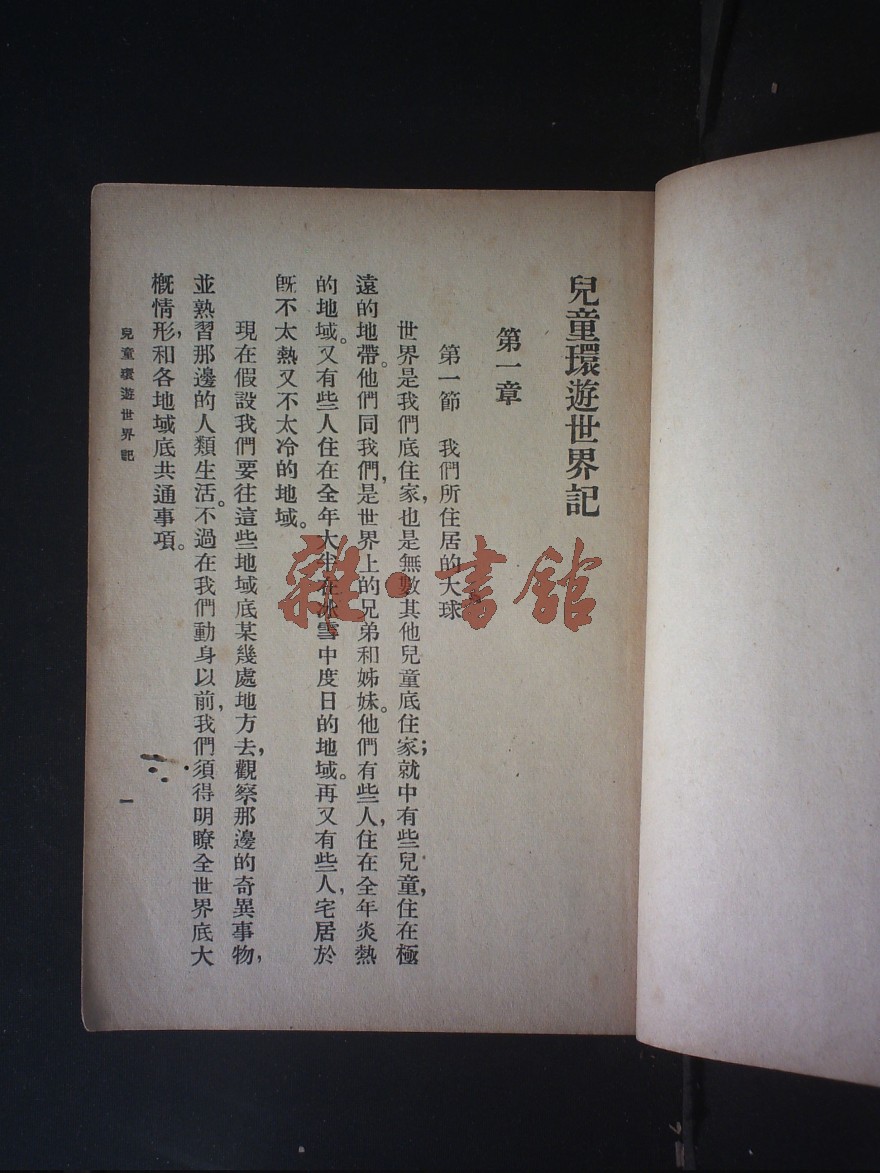 兒童環遊世界記
第一章
第一節　我們所住居的大球
世界是我們底住家，也是無數其他兒童底住家；就中有些兒童，住在極
遠的地帶。他們同我們，是世界上的兄弟和姊妹。他們有些人，住在全年炎熱
的地域。又有些人住在全年大半在冰雪中度日的地域。再又有些人，宅居於
旣不太熱又不太冷的地域。
現在假設我們要往這些地域底某幾處地方去，觀察那邊的奇異事物，
並熟習那邊的人類生活。不過在我們動身以前，我們須得明瞭全世界底大
概情形，和各地域底共通事項。
兒童環遊世界記
一
雜·書館